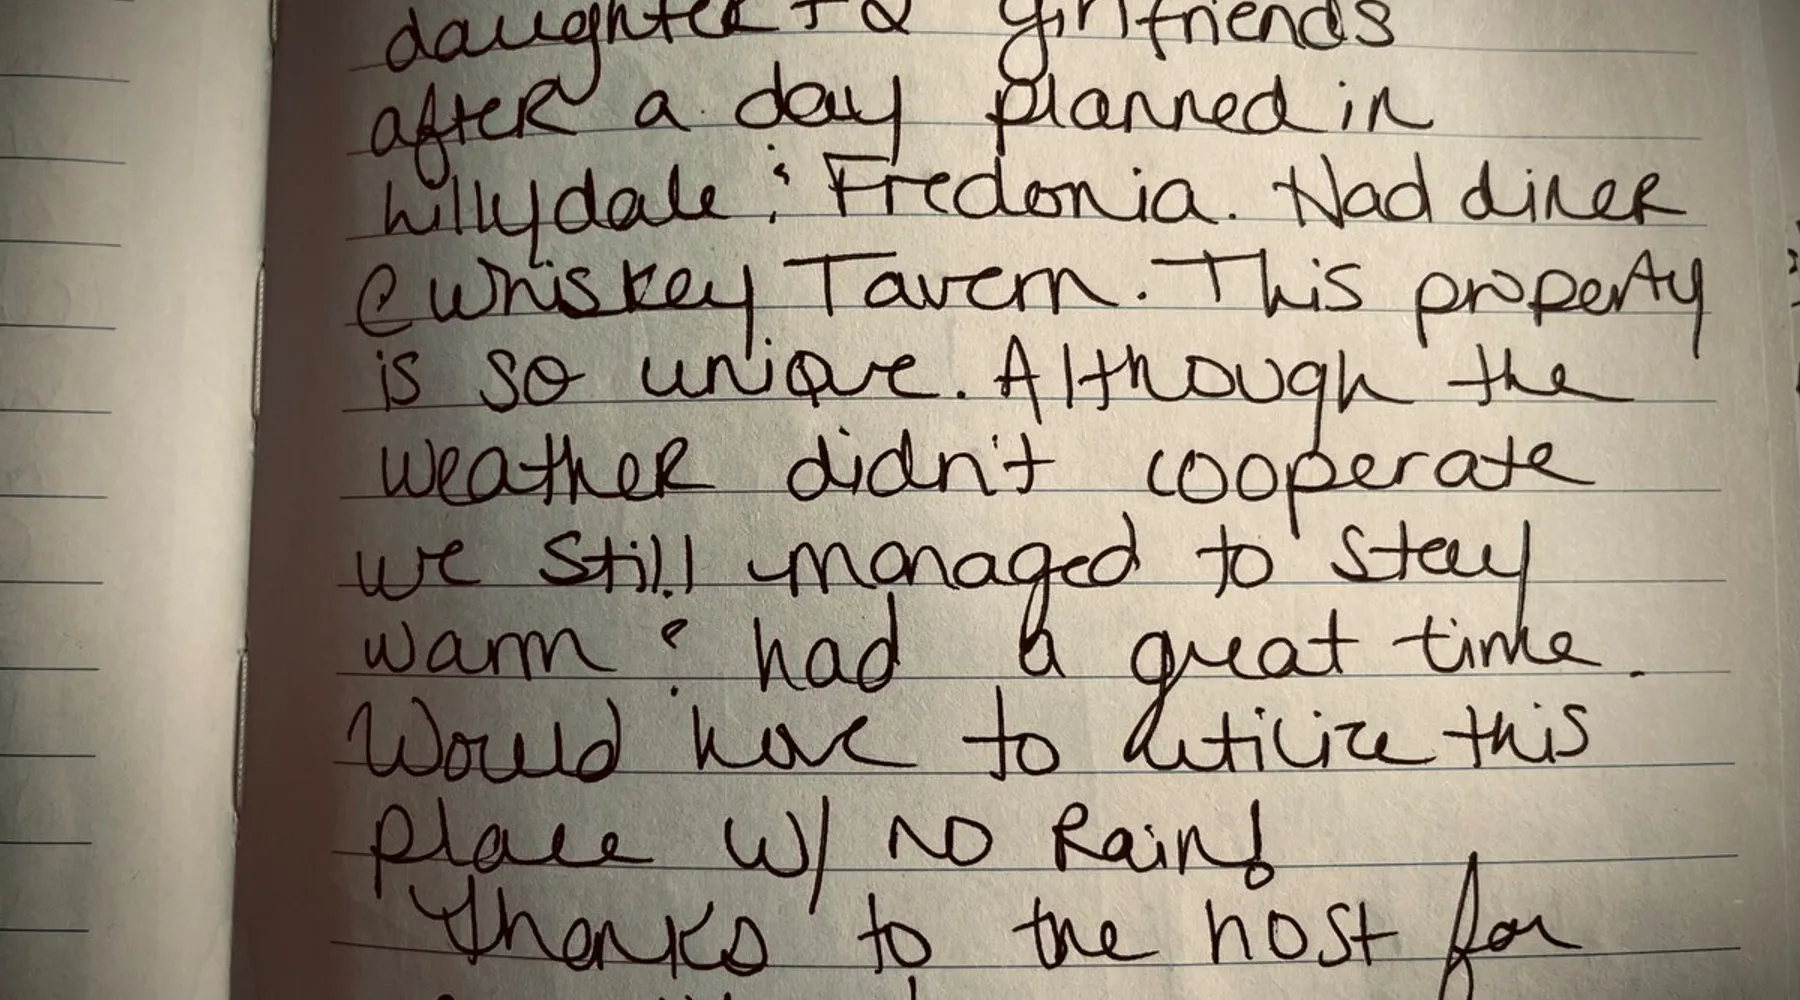 daughter + 2 girlfriends
after a day planned in
Lillydale & Fredonia. Had diner
@ Whiskey Tavern. This property
is so unique. Although the
weather didn't cooperate
we still managed to stay
warm & had a great time.
Would have to utilize this
place w/ no Rain!
Thanks to the host for